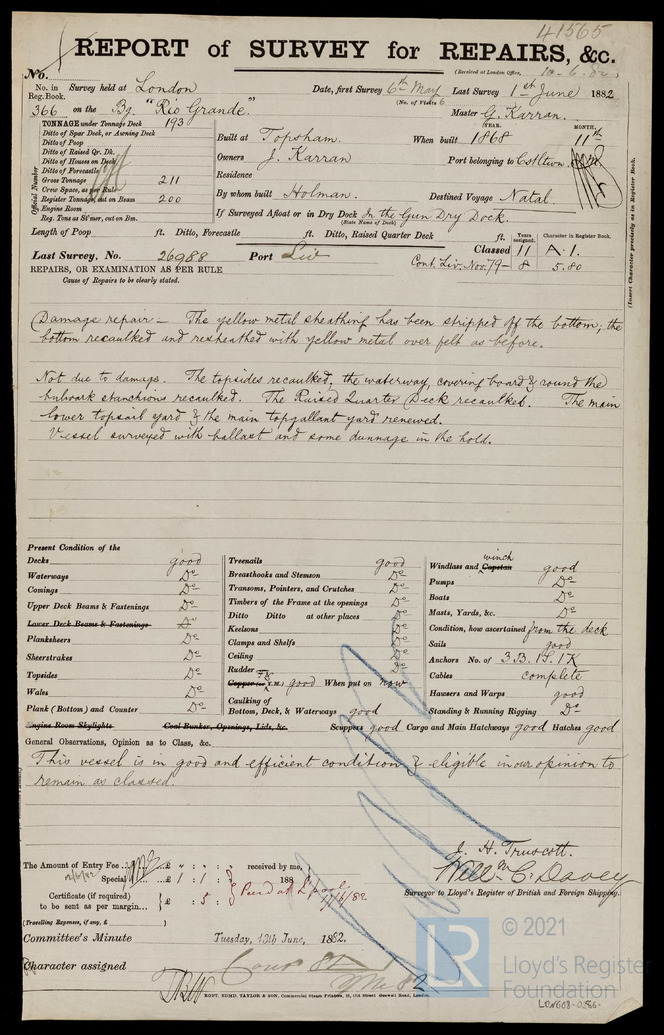 41565
REPORT of SURVEY for REPAIRS, &c.
(Received at London Office, 10.6.82)
No.
No. in Reg. Book. Survey held at London Date, first Survey 6th May Last Survey 1st June 1882
(No. of Visits 6
366 on the Bg. "Rio Grande." Master G. Karran.
TONNAGE under Tonnage Deck 193
Ditto of Spar Deck, or Awning Deck
Ditto of Poop
Ditto of Raised Qr. Dk.
Ditto of Houses on Deck
Ditto of Forecastle
Gross Tonnage 211
Crew Space, as per Rule
Register Tonnage, as cut on Beam 200
Engine Room
Reg. Tons as St'mer, cut on Bm.
Official Number
YEAR. MONTH.
Built at Topsham. When built 1868 11th
Owners J. Karran Port belonging to Cstltwn.
Residence
By whom built Holman. Destined Voyage Natal.
If Surveyed Afloat or in Dry Dock In the Gun Dry Dock.
(State Name of Dock)
Length of Poop ft. Ditto, Forecastle ft. Ditto, Raised Quarter Deck ft.
Years assigned. Character in Register Book.
(Insert Character precisely as in Register Book.
Last Survey, No. 26988 Port Liv Classed 11 A.1.
Cont. Liv. Nov. 79 - 8 5.80
REPAIRS, OR EXAMINATION AS PER RULE
Cause of Repairs to be clearly stated.
Damage repair – The yellow metal sheathing has been stripped off the bottom, the
bottom recaulked and resheathed with yellow metal over felt as before.
Not due to damage. The topsides recaulked, the waterway, covering board & round the
bulwark stanchions recaulked. The Raised Quarter Deck recaulked. The main
lower topsail yard & the main topgallant yard renewed.
Vessel surveyed with ballast and some dunnage in the hold.
Present Condition of the
Decks good
Waterways Do
Comings Do
Upper Deck Beams & Fastenings Do
Lower Deck Beams & Fastenings Do
Planksheers Do
Sheerstrakes Do
Topsides Do
Wales Do
Plank (Bottom) and Counter Do
Engine Room Skylights Coal Bunker, Openings, Lids, &c.
Treenails good
Breasthooks and Stemson Do
Transoms, Pointers, and Crutches Do
Timbers of the Frame at the openings Do
Ditto Ditto at other places Do
Keelsons Do
Clamps and Shelfs Do
Ceiling Do
Rudder Do
Copper (or Y.M.) good When put on now
Caulking of
Bottom, Deck, & Waterways good
winch
Windlass and Capstan good
Pumps Do
Boats Do
Masts, Yards, &c. Do
Condition, how ascertained from the deck
Sails good
Anchors No. of 3 B. 1 S. 1 K
Cables complete
Hawsers and Warps good
Standing & Running Rigging Do
Scuppers good Cargo and Main Hatchways good Hatches good
General Observations, Opinion as to Class, &c.
This vessel is in good and efficient condition & eligible in our opinion to
remain as classed.
J. H. Truscott.
Willm C. Davey
Surveyor to Lloyd's Register of British and Foreign Shipping.
The Amount of Entry Fee £ " : " : received by me,
Special £ 1 : 1 : 188
Certificate (if required)
to be sent as per margin £ : 5 :
(Travelling Expenses, if any, £ )
Committee's Minute Tuesday, 13th June, 1882.
Character assigned
ROBT. EDMD. TAYLOR & SON, Commercial Steam Printers, 19, Old Street, Goswell Road, London.
LR
© 2021
Lloyd's Register
Foundation
LON608-0586